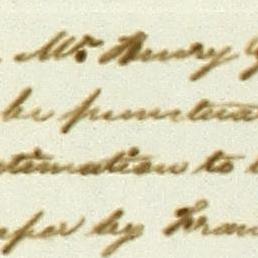 Mr. Henry
be punctua
stimation to
by Fran